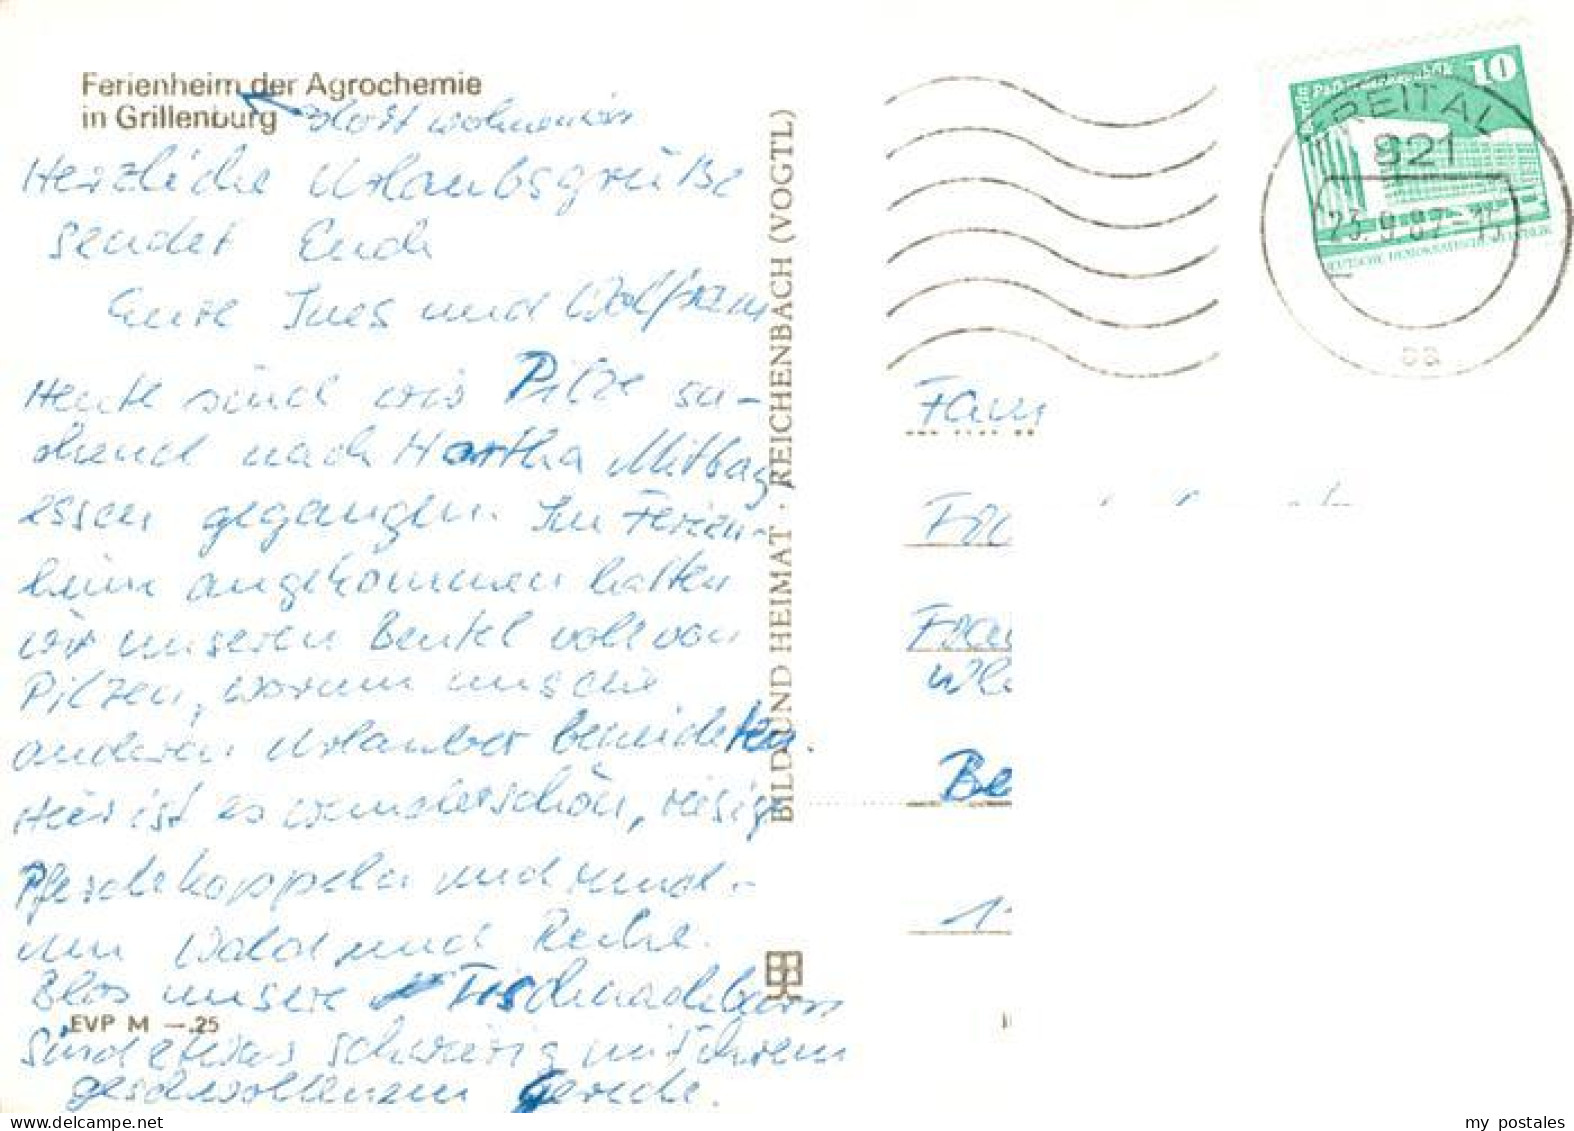 Ferienheim der Agrochemie
in Grillenburg dort wohnen wir
Herzliche Urlaubsgrüße
sendet Euch
Eure Ines und Wolfram
Heute sind wir Pilze su-
chend nach Hartha Mittag
essen gegangen. Im Ferien-
heim angekommen hatten
wir unseren Beutel voll von
Pilzen, worum uns die
anderen Urlauber beneideten.
Hier ist es wunderschön, riesige
Pferdekoppeln und rund-
um Wald und Ruhe.
Blos unsere Tischnachbarn
EVP M —.25
sind etwas schwierig mit ihrem
geschwollenem Gerede.
BILD UND HEIMAT · REICHENBACH (VOGTL)
10
FREITAL
821
23.9.87-15
DEUTSCHE DEMOKRATISCHE REPUBLIK
aa
Fam
Be
my postales